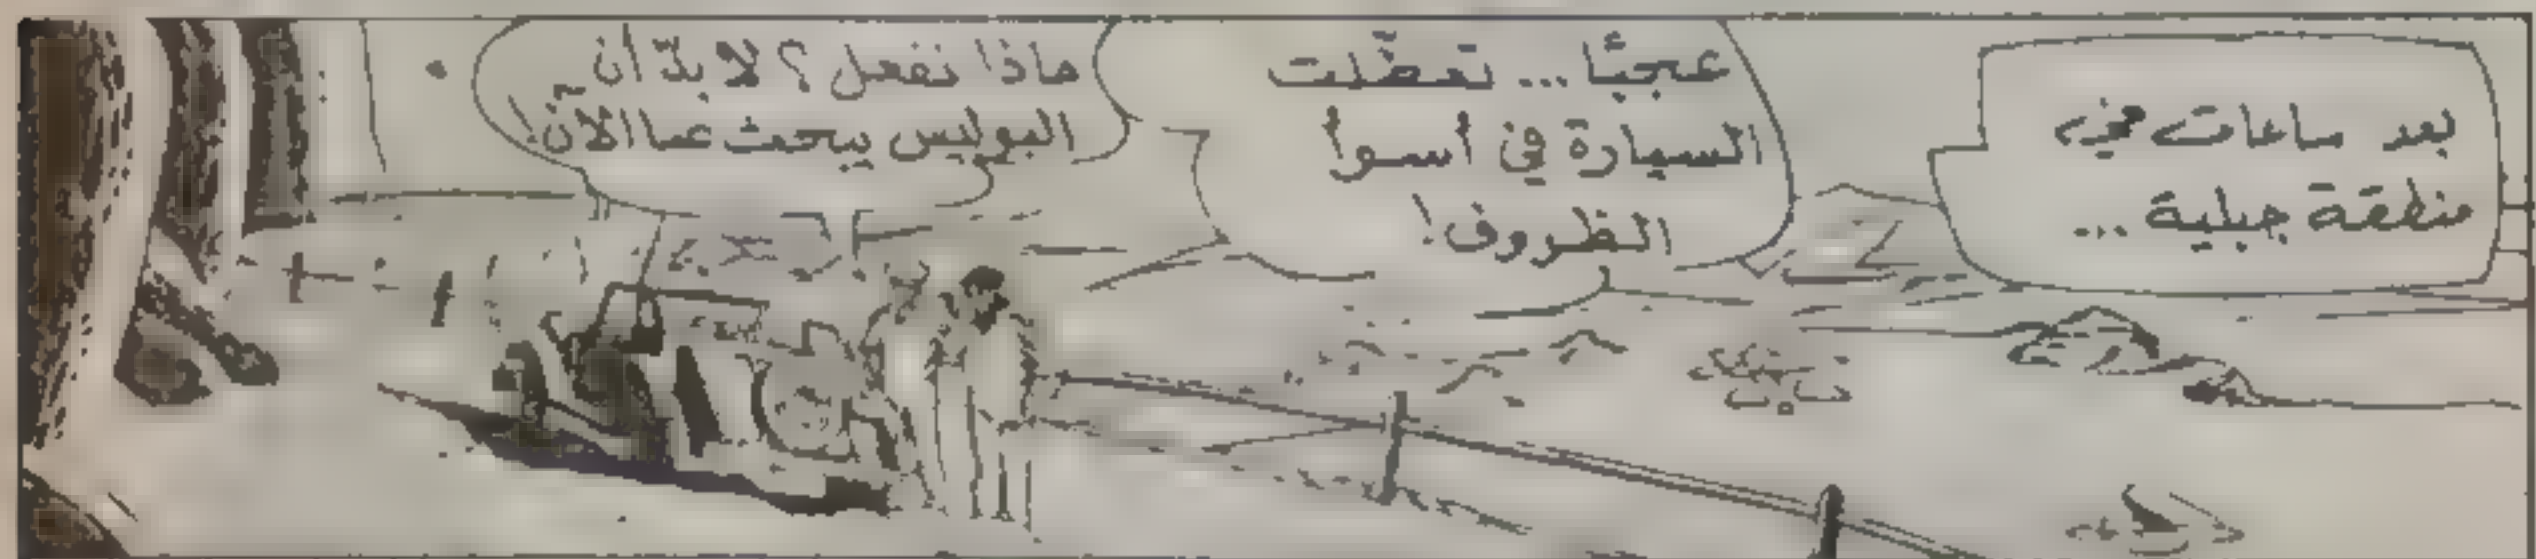 بعد ساعات في
منطقة جبلية ...
عجبًا ... تعطّلت
السيارة في اسوا
الظروف !
ماذا نفعل ؟ لا بدّ أن
البوليس يبحث عنا الآن !